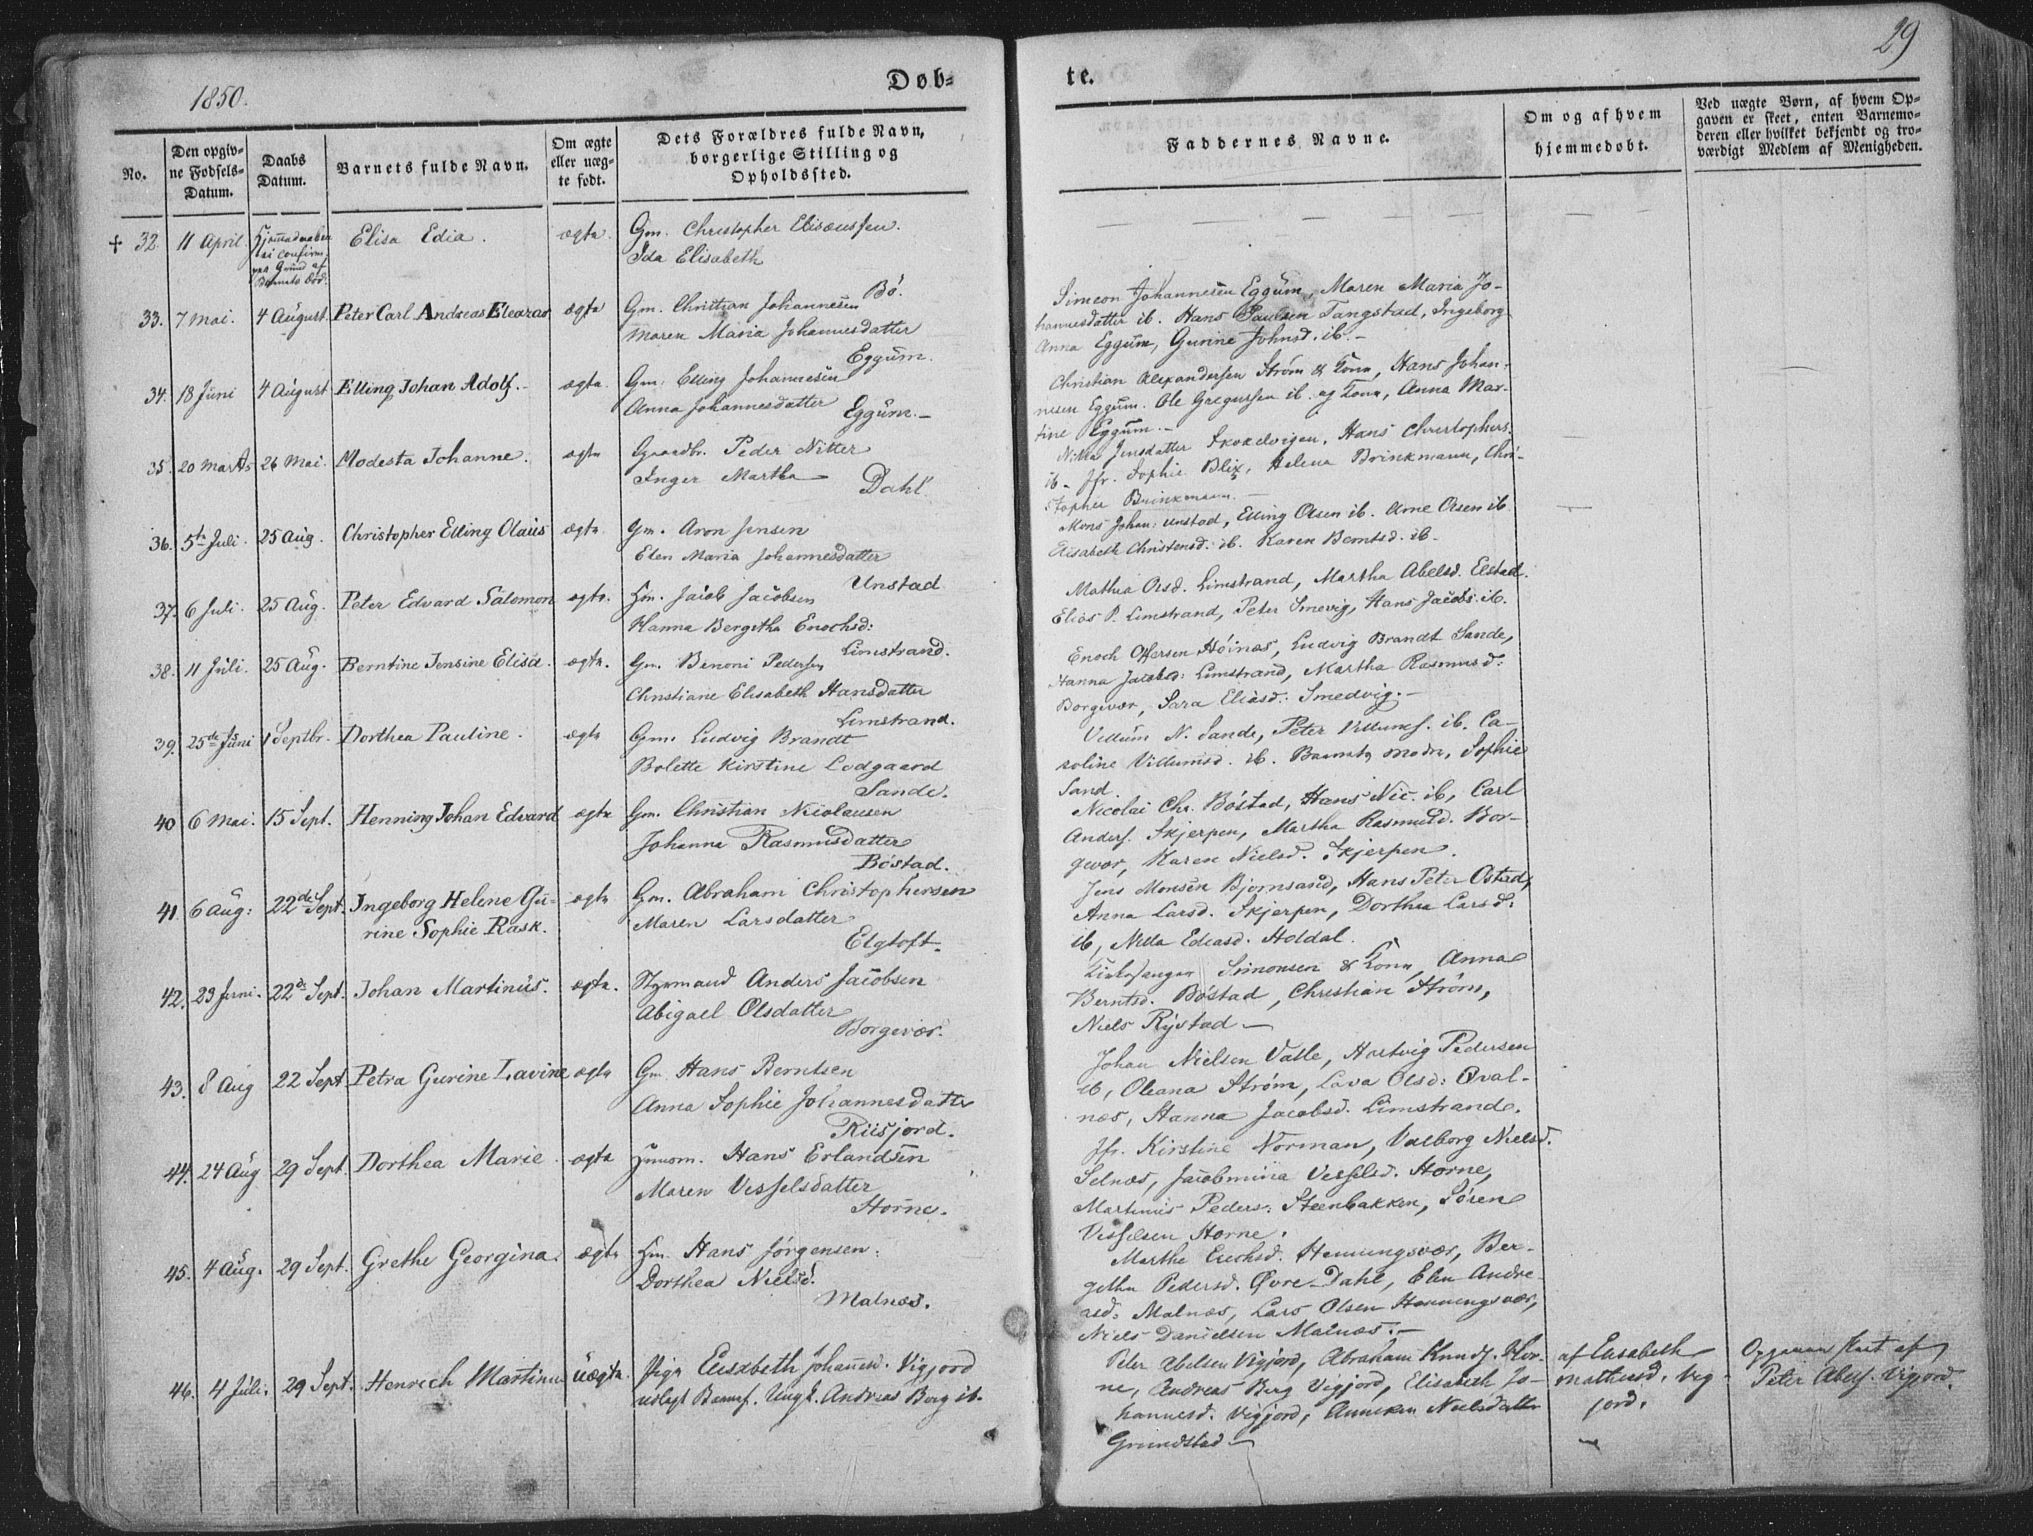 1850.
Døb-
te.
29
No.
Den opgiv-
ne Fødsels-
Datum.
Daabs
Datum.
Barnets fulde Navn.
Om ægte
eller uæg-
te født.
Dets Forældres fulde Navn,
borgerlige Stilling og
Opholdssted.
Faddernes Navne.
Om og af hvem
hjemmedøbt.
Ved uægte Børn, af hvem Op-
gaven er skeet, enten Barnemo-
deren eller hvilket bekjendt og tro-
værdigt Medlem af Menigheden.
† 32. 11 April. Elisa Edia. ægte. Gm. Christopher Eliseussen.
Ida Elisabeth
Bö.
33. 7 Mai. 4 August. Peter Carl Andreas Eleazar ægte Gm. Christian Johannesen
Maren Maria Johannesdatter
Eggum.
Simeon Johannesen Eggum, Maren Maria Jo-
hannesdatter ib. Hans Paulsen Tangstad, Ingeborg
Anna Eggum, Gurine Johnsd. ib. –
34. 18 Juni 4 August Elling Johan Adolf. ægte. Gm. Elling Johannesen
Anna Johannesdatter
Eggum. –
Christian Alexandersen Strøm & Kone, Hans Johan-
nesen Eggum. Ole Gregussen ib. og Kone, Anna Mar-
tine Eggum. –
35. 20 Marts 26 Mai. Modesta Johanne. ægte Gaardbr. Peder Nitter
Inger Martha
Dahl.
Jensdatter Skokelvigen, Hans Christophers.
ib. Jfr. Sophie Blix, Helena Brinkmann, Chri-
stopher Brinkmann. –
36. 5te Juli. 25 Aug. Christopher Elling Olaus ægte. Gm. Aron Jensen
Elen Maria Johannesdatter
Unstad
Mons Johan: Unstad, Elling Olsen ib. Arne Olsen ib.
Elisabeth Christensd. ib. Karen Berntsd. ib.
37. 6 Juli. 25 Aug. Peter Edvard Salomon ægte. Hm. Jacob Jacobsen
Hanna Bergitha Enochsd:
Limstrand.
Mathea Olsd. Limstrand, Martha Abelsd. Elstad.
Elias P. Limstrand, Peter Smevig, Hans Jacobs: ib.
38. 11 Juli. 25 Aug. Berntine Jensine Elisa. ægte. Gm. Benoni Pedersen
Christiane Elisabeth Hansdatter
Limstrand.
Enoch Offersen Höinæs, Ludvig Brandt Sande,
Hanna Jacobsd: Limstrand, Martha Rasmusd:
Borgevær, Sara Eliasd: Smedvig. –
39. 25de Juni 1 Septbr. Dorthea Pauline. ægte Gm. Ludvig Brandt
Bolette Kirstine Lodgaard
Sande.
Villum N. Sande, Peter Villums. ib. Ca-
roline Villumsd. ib. Barnets Moder, Sophie
Sand.
40 6 Mai. 15 Sept. Henning Johan Edvard ægte Gm. Christian Nicolausen
Johanna Rasmusdatter
Böstad.
Nicolai Chr. Böstad, Hans Nic. ib, Carl
Anders. Skjerpen, Martha Rasmusd. Bor-
gevær, Karen Nielsd. Skjerpen.
41. 6 Aug: 22de Sept. Ingeborg Helene Gu-
rine Sophie Rask. ægte Gm. Abraham Christophersen
Maren Larsdatter
Elgtoft.
Jens Monsen Bjørnsand, Hans Peter Ostad,
Anna Larsd. Skjerpen, Dorthea Larsd:
ib, Nilla Eliasd. Holdal.
42. 23 Juni. 22de Sept. Johan Martinus. ægte. Styrmand Anders Jacobsen
Abigael Olsdatter
Borgevær.
Kirkesanger Simonsen & Kone, Anna
Berntsd. Böstad, Christian Strøm,
Niels Rystad –
43. 8 Aug 22 Sept Petra Gurine Lavine ægte Gm Hans Berntsen
Anna Sophie Johannesdatter
Riisjord.
Johan Nielsen Valle, Hartvig Pedersen
ib, Oleana Strøm, Lava Olsd: Qval-
næs, Hanna Jacobsd. Limstrand.
44. 24 Aug 29 Sept. Dorthea Marie ægte Huusm. Hans Erlandsen
Maren Vesselsdatter
Horne.
Jfr. Kirstine Norman, Valborg Nielsd.
Selnæs, Jacobmina Vesselsd. Horne,
Martinus Peders: Steenbakken, Sören
Vesselsen Horne.
45. 4 Aug. 29 Sept. Grethe Georgina. ægte Hm. Hans Jørgensen.
Dorthea Nielsd.
Malnæs.
Marthe Erichsd. Henningsvær, Ber-
githa Pedersd. Øvre-Dahl, Elen Andre-
asd: Malnæs, Lars Olsen Henningsvær,
Niels Danielsen Malnæs. –
46. 4 Juli. 29 Sept. Henrich Martin uægte. Pige Elisabeth Johannesd. Vigjord
udlagt Barnef. Ungk. Andreas Berg ib.
Peter Abelsen Vigjord, Abraham Knuds. Hor-
ne, Andreas Berg Vigjord, Elisabeth Jo-
hannesd. Vigjord, Anneken Nielsdatter
Grundstad –
af Elisabeth
Mathisd. Vig-
jord.
Opgaven skeet af
Peter Abels. Vigjord.